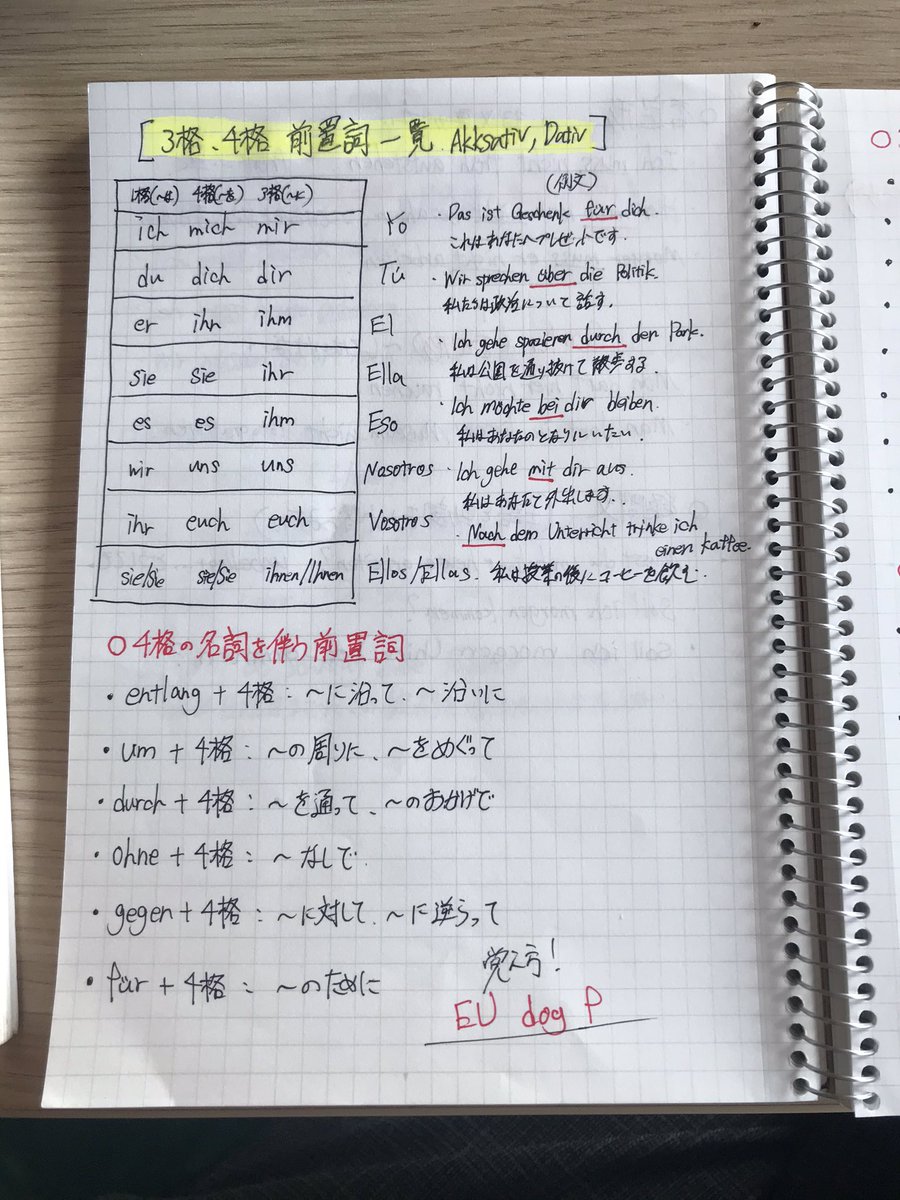 [3格、4格 前置詞一覧 Akksativ, Dativ]
1格(~は) 4格(~を) 3格(~に)
ich mich mir Yo
du dich dir Tú
er ihn ihm El
sie sie ihr Ella
es es ihm Eso
wir uns uns Nosotros
ihr euch euch Vosotros
sie/Sie sie/Sie ihnen/Ihnen Ellos/Ellas.
(例文)
・Das ist Geschenk für dich.
これはあなたへプレゼントです.
・Wir sprechen über die Politik.
私たちは政治について話す.
・Ich gehe spazieren durch den Park.
私は公園を通り抜けて散歩する
・Ich möchte bei dir bleiben.
私はあなたのとなりにいたい.
・Ich gehe mit dir aus.
私はあなたと外出します.
・Nach dem Unterricht trinke ich
einen Kaffee.
私は授業の後にコーヒーを飲む.
○4格の名詞を伴う前置詞
・entlang + 4格 : ~に沿って、~沿いに
・um + 4格 : ~の周りに、~をめぐって
・durch + 4格 : ~を通って、~のおかげで
・ohne + 4格 : ~なしで.
・gegen + 4格 : ~に対して、~に逆らって
・für + 4格 : ~のために
覚え方!
EU dog f